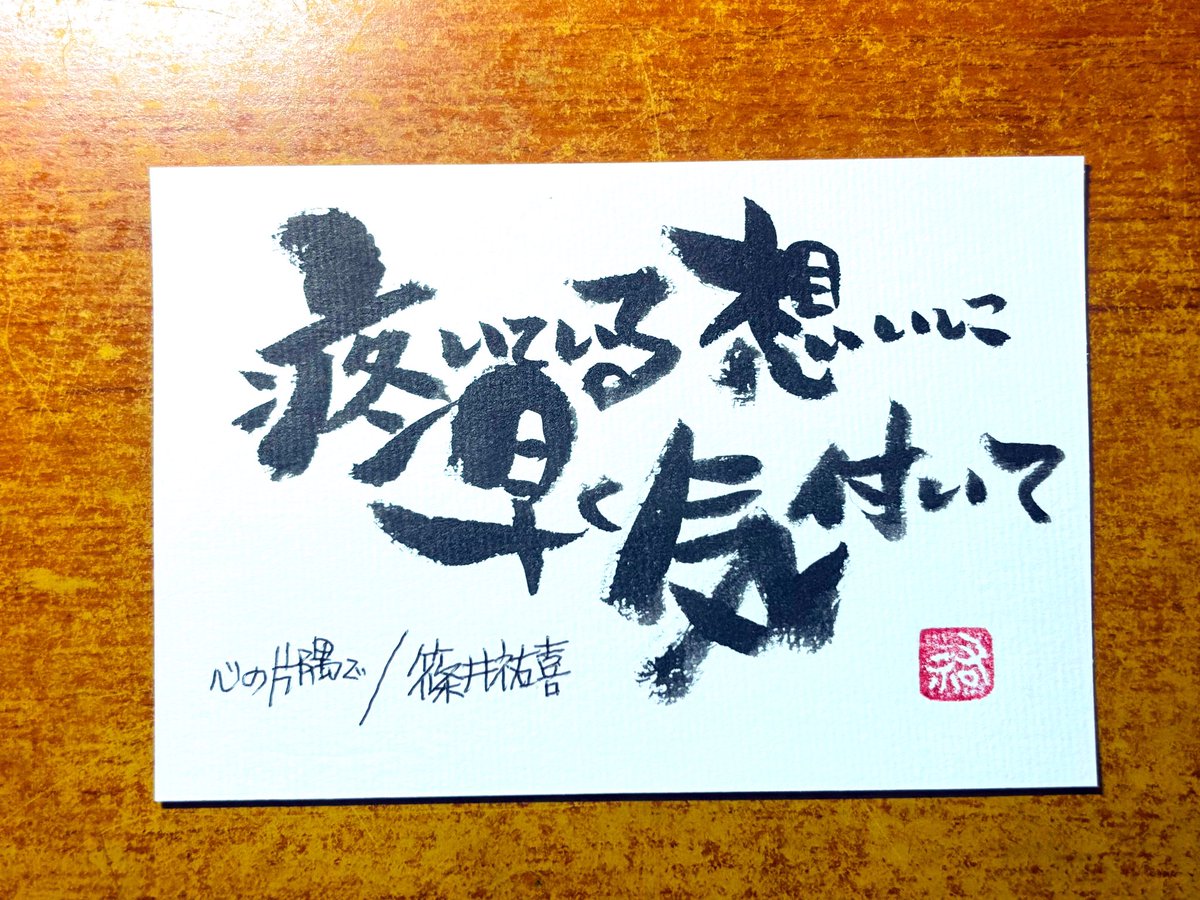 疼いている想いに
早く気付いて
心の片隅で/篠井祐喜